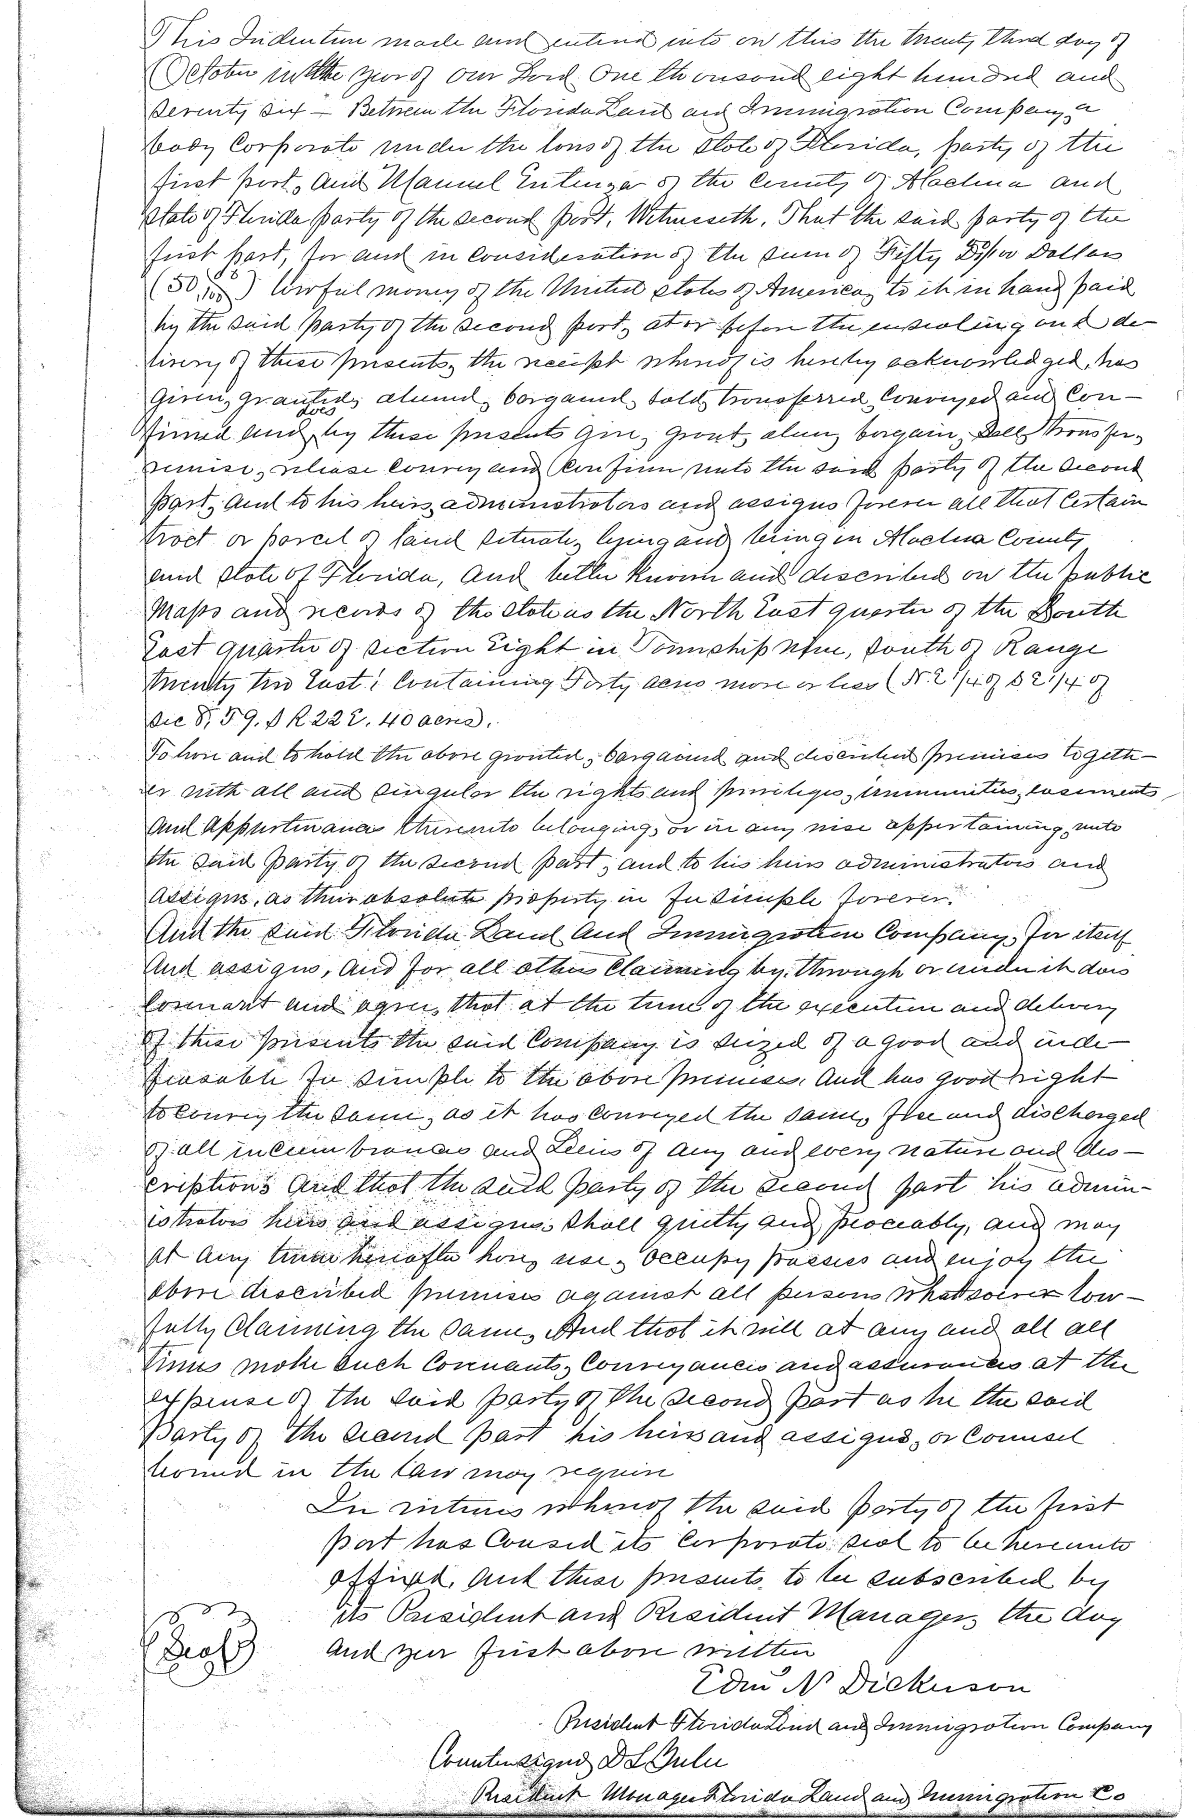 This Indenture made and entered into on this the twenty third day of
October in the year of our Lord One thousand eight hundred and
Seventy Six – Between the Florida Land and Immigration Company, a
body Corporate under the laws of the State of Florida, party of the
first part, and Manuel of the County of Alachua and
State of Florida party of the second part, Witnesseth, That the said party of the
first part, for and in consideration of the sum of Fifty Dollars
(50) lawful money of the United States of America, to it in hand paid
by the said party of the second part, at or before the ensealing and de-
livery of these presents, the receipt whereof is hereby acknowledged, has
given, granted, aliened, bargained, sold, transferred, Conveyed and Con-
firmed and does by these presents give, grant, alien, bargain, Sell, transfer,
remise, release Convey and Confirm unto the said party of the second
part, and to his heirs, administrators and assigns forever all that Certain
tract or parcel of land situate, lying and being in Alachua County
and State of Florida, and better known and described on the public
Maps and records of the State as the North East quarter of the South
East quarter of Section Eight in Township Nine, South of Range
twenty two East; Containing Forty acres more or less (N.E 1/4 of S E 1/4 of
Sec 8, T 9. S R 22 E. 40 acres).
To have and to hold the above granted, bargained and described premises togeth-
er with all and singular the rights and privileges, immunities, easements
And Appurtenances thereunto belonging, or in any wise appertaining, unto
the said party of the second part, and to his heirs administrators and
Assigns, as their absolute property in fee simple forever.
And the said Florida Land And Immigration Company, for itself
And assigns, and for all others Claiming by, through or under it does
Covenant and agree, that at the time of the execution and delivery
of these presents the said Company is seized of a good and inde-
feasable fee simple to the above premises, And has good right
to convey the same, as it has conveyed the same, free and discharged
of all incumbrances and Liens of any and every nature and des-
criptions And that the said party of the second part his admin-
istrators heirs and assigns shall quietly and peaceably, and may
at any time hereafter have, use, occupy possess and enjoy the
above described premises against all persons whatsoever law-
fully Claiming the same, And that it will at any and all all
times make such Covenants, Conveyances and assurances at the
expense of the said party of the second part as he the said
party of the second part his heirs and assigns, or Counsel
learned in the law may require
In witness whereof the said party of the first
part has caused its corporate seal to be hereunto
affixed, and these presents to be subscribed by
its President and Resident Manager, the day
and year first above written
Seal
Edw N Dickerson
President Florida Land and Immigration Company
Countersigned D L
Resident Manager Florida Land and Immigration Co